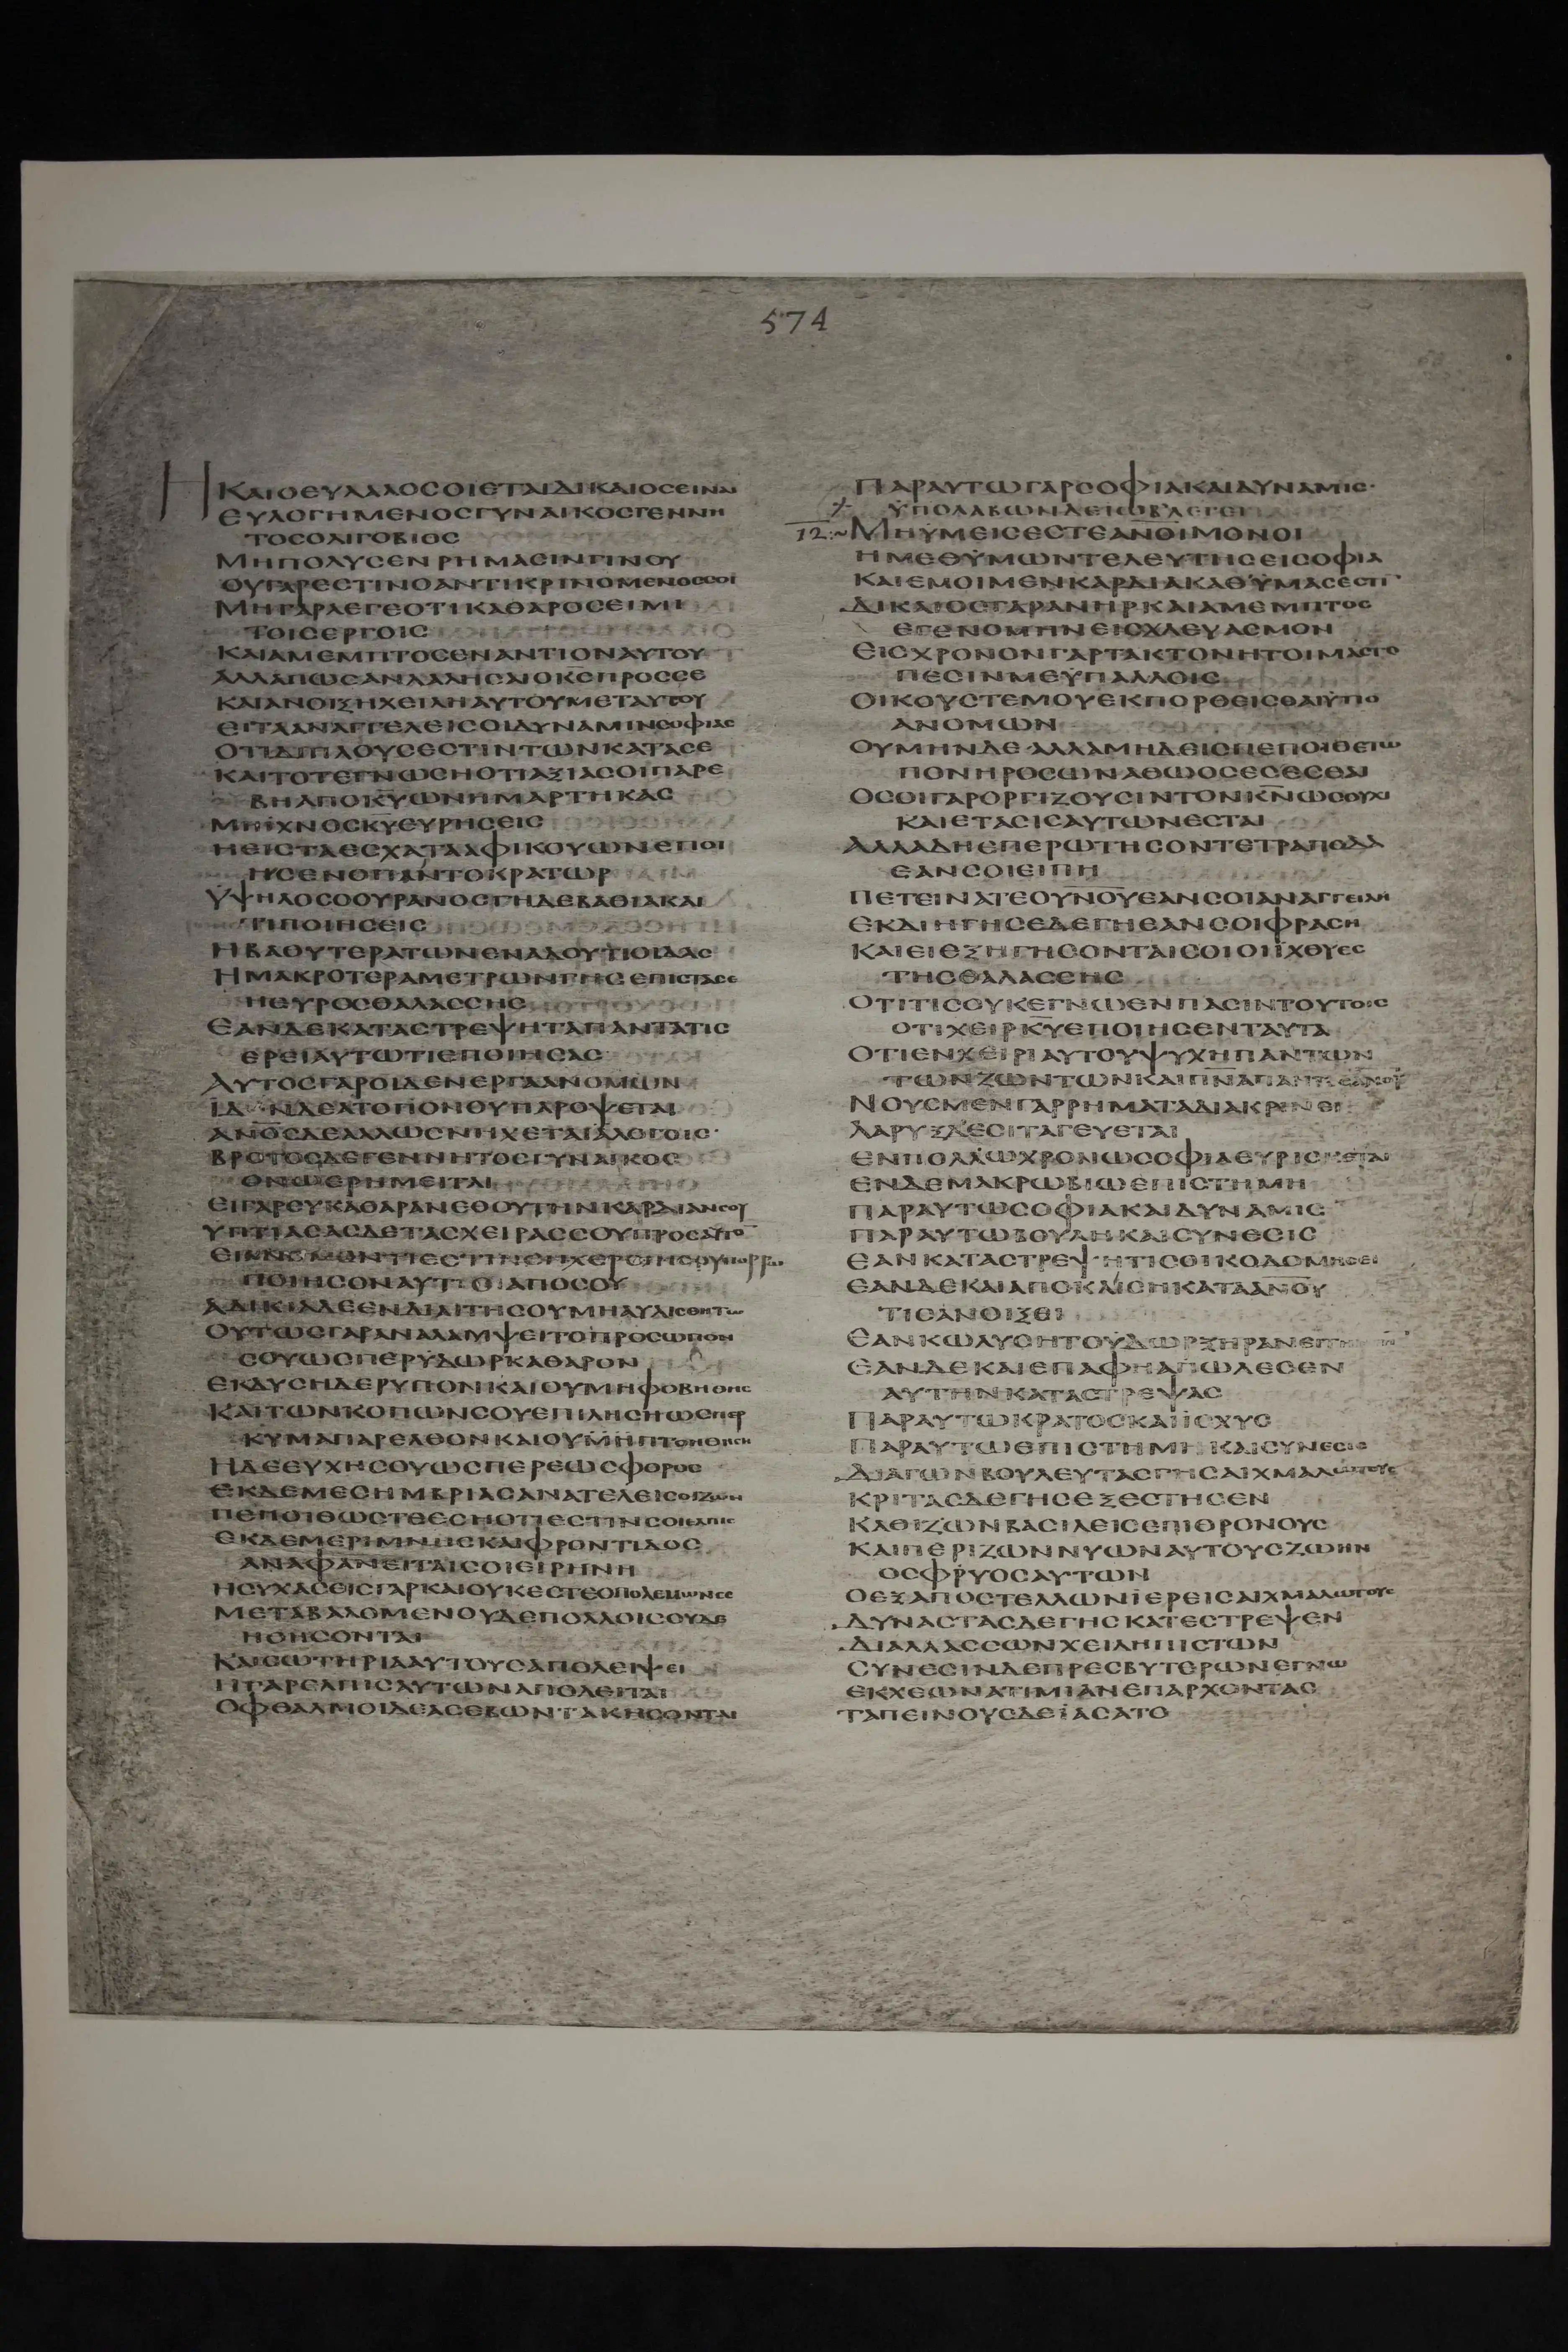 574
Η ΚΑΙΟΕΥΛΑΛΟΣΟΙΕΤΑΙΔΙΚΑΙΟΣΕΙΝΑΙ
ΕΥΛΟΓΗΜΕΝΟΣΓΥΝΑΙΚΟΣΓΕΝΝΗ
ΤΟΣΟΛΙΓΟΒΙΟΣ
ΜΗΠΟΛΥΣΕΝΡΗΜΑΣΙΝΓΙΝΟΥ
ΟΥΓΑΡΕΣΤΙΝΟΑΝΤΙΚΡΙΝΟΜΕΝΟΣΣΟΙ
ΜΗΓΑΡΛΕΓΕΟΤΙΚΑΘΑΡΟΣΕΙΜΙ
ΤΟΙΣΕΡΓΟΙΣ
ΚΑΙΑΜΕΜΠΤΟΣΕΝΑΝΤΙΟΝΑΥΤΟΥ
ΑΛΛΑΠΩΣΑΝΛΑΛΗΣΑΙΟΚ̅Σ̅ΠΡΟΣΣΕ
ΚΑΙΑΝΟΙΞΗΧΕΙΛΗΑΥΤΟΥΜΕΤΑΥΤΟΥ
ΕΙΤΑΑΝΑΓΓΕΛΕΙΣΟΙΔΥΝΑΜΙΝΣΟΦΙΑΣ
ΟΤΙΔΙΠΛΟΥΣΕΣΤΙΝΤΩΝΚΑΤΑΣΕ
ΚΑΙΤΟΤΕΓΝΩΣΗΟΤΙΑΞΙΑΣΟΙΠΑΡΕ
ΒΗΑΠΟΚ̅Υ̅ΩΝΗΜΑΡΤΗΚΑΣ
ΜΗΙΧΝΟΣΚ̅Υ̅ΕΥΡΗΣΕΙΣ
ΗΕΙΣΤΑΕΣΧΑΤΑΑΦΙΚΟΥΩΝΕΠΟΙ
ΗΣΕΝΟΠΑΝΤΟΚΡΑΤΩΡ
ΫΨΗΛΟΣΟΟΥΡΑΝΟΣΓΗΔΕΒΑΘΙΑΚΑΙ
ΤΙΠΟΙΗΣΕΙΣ
ΗΒΑΘΥΤΕΡΑΤΩΝΕΝΑΔΟΥΤΙΟΙΔΑΣ
ΗΜΑΚΡΟΤΕΡΑΜΕΤΡΩΝΓΗΣΕΠΙΣΤΑΣΕ
ΗΕΥΡΟΣΘΑΛΑΣΣΗΣ
ΕΑΝΔΕΚΑΤΑΣΤΡΕΨΗΤΑΠΑΝΤΑΤΙΣ
ΕΡΕΙΑΥΤΩΤΙΕΠΟΙΗΣΑΣ
ΑΥΤΟΣΓΑΡΟΙΔΕΝΕΡΓΑΑΝΟΜΩΝ
ΙΔΩΝΔΕΑΤΟΠΟΝΟΥΠΑΡΟΨΕΤΑΙ
ΑΝ̅Ο̅Σ̅ΔΕΑΛΛΩΣΝΗΧΕΤΑΙΛΟΓΟΙΣ·
ΒΡΟΤΟΣΔΕΓΕΝΝΗΤΟΣΓΥΝΑΙΚΟΣ
ΟΝΩΕΡΗΜΕΙΤΑΙ
ΕΙΓΑΡΣΥΚΑΘΑΡΑΝΕΘΟΥΤΗΝΚΑΡΔΙΑΝΣΟΥ
ΥΠΤΙΑΣΑΣΔΕΤΑΣΧΕΙΡΑΣΣΟΥΠΡΟΣΑΥΤΟ̅
ΠΟΙΗΣΟΝΑΥΤΟΑΠΟΣΟΥ
ΑΔΙΚΙΑΔΕΕΝΔΙΑΙΤΗΣΟΥΜΗΑΥΛΙΣΘΗΤΩ
ΟΥΤΩΣΓΑΡΑΝΑΛΑΜΨΕΙΤΟΠΡΟΣΩΠΟΝ
ΣΟΥΩΣΠΕΡΥΔΩΡΚΑΘΑΡΟΝ
ΕΚΔΥΣΗΔΕΡΥΠΟΝΚΑΙΟΥΜΗΦΟΒΗΘΗΣ
ΚΑΙΤΩΝΚΟΠΩΝΣΟΥΕΠΙΛΗΣΗΩΣΠΕΡ
ΚΥΜΑΠΑΡΕΛΘΟΝΚΑΙΟΥΜΗΠΤΟΗΘΗΣΗ
ΗΔΕΕΥΧΗΣΟΥΩΣΠΕΡΕΩΣΦΟΡΟΣ
ΕΚΔΕΜΕΣΗΜΒΡΙΑΣΑΝΑΤΕΛΕΙΣΟΙΖΩΗ
ΠΕΠΟΙΘΩΣΤΕΕΣΗΟΤΙΕΣΤΙΝΣΟΙΕΛΠΙΣ
ΕΚΔΕΜΕΡΙΜΝΗΣΚΑΙΦΡΟΝΤΙΔΟΣ
ΑΝΑΦΑΝΕΙΤΑΙΣΟΙΕΙΡΗΝΗ
ΗΣΥΧΑΣΕΙΣΓΑΡΚΑΙΟΥΚΕΣΤΕΟΠΟΛΕΜΩΝΣΕ
ΜΕΤΑΒΑΛΟΜΕΝΟΥΔΕΠΟΛΛΟΙΣΟΥΔΕ
ΗΘΗΣΟΝΤΑΙ
ΚΑΙΣΩΤΗΡΙΑΑΥΤΟΥΣΑΠΟΛΕΙΨΕΙ
ΗΓΑΡΕΛΠΙΣΑΥΤΩΝΑΠΟΛΕΙΤΑΙ
ΟΦΘΑΛΜΟΙΔΕΑΣΕΒΩΝΤΑΚΗΣΟΝΤΑΙ
ΠΑΡΑΥΤΩΓΑΡΣΟΦΙΑΚΑΙΔΥΝΑΜΙΣ·
ΫΠΟΛΑΒΩΝΔΕΙΩΒΛΕΓΕΙ
12:~ ΜΗΫΜΕΙΣΕΣΤΕΑΝ̅Ο̅Ι̅ΜΟΝΟΙ
ΗΜΕΘΫΜΩΝΤΕΛΕΥΤΗΣΕΙΣΟΦΙΑ
ΚΑΙΕΜΟΙΜΕΝΚΑΡΔΙΑΚΑΘΫΜΑΣΕΣΤΙ̅
ΔΙΚΑΙΟΣΓΑΡΑΝΗΡΚΑΙΑΜΕΜΠΤΟΣ
ΕΓΕΝΟΜΗΝΕΙΣΧΛΕΥΑΣΜΟΝ
ΕΙΣΧΡΟΝΟΝΓΑΡΤΑΚΤΟΝΗΤΟΙΜΑΣΤΟ
ΠΕΣΙΝΜΕΫΠΑΛΛΟΙΣ
ΟΙΚΟΥΣΤΕΜΟΥΕΚΠΟΡΘΕΙΣΘΑΙΫΠΟ
ΑΝΟΜΩΝ
ΟΥΜΗΝΔΕΑΛΛΑΜΗΔΕΙΣΠΕΠΟΙΘΕΤΩ
ΠΟΝΗΡΟΣΩΝΑΘΩΟΣΕΣΕΣΘΑΙ
ΟΣΟΙΓΑΡΟΡΓΙΖΟΥΣΙΝΤΟΝΚ̅Ν̅ΩΣΟΥΧΙ
ΚΑΙΕΤΑΣΙΣΑΥΤΩΝΕΣΤΑΙ
ΑΛΛΑΔΗΕΠΕΡΩΤΗΣΟΝΤΕΤΡΑΠΟΔΑ
ΕΑΝΣΟΙΕΙΠΗ
ΠΕΤΕΙΝΑΤΕΟΥ̅Ν̅Ο̅Υ̅ΕΑΝΣΟΙΑΝΑΓΓΕΙΛΗ
ΕΚΔΙΗΓΗΣΕΔΕΓΗΕΑΝΣΟΙΦΡΑΣΗ
ΚΑΙΕΙΕΞΗΓΗΣΟΝΤΑΙΣΟΙΟΙΪΧΘΥΕΣ
ΤΗΣΘΑΛΑΣΣΗΣ
ΟΤΙΤΙΣΟΥΚΕΓΝΩΕΝΠΑΣΙΝΤΟΥΤΟΙΣ
ΟΤΙΧΕΙΡΚ̅Υ̅ΕΠΟΙΗΣΕΝΤΑΥΤΑ
ΟΤΙΕΝΧΕΙΡΙΑΥΤΟΥΨΥΧΗΠΑΝΤΩΝ
ΤΩΝΖΩΝΤΩΝΚΑΙΠ̅Ν̅Α̅ΠΑΝΤΟΣΑΝ̅Ο̅Υ̅
ΝΟΥΣΜΕΝΓΑΡΡΗΜΑΤΑΔΙΑΚΡΙΝΕΙ
ΛΑΡΥΞΔΕΣΙΤΑΓΕΥΕΤΑΙ
ΕΝΠΟΛΛΩΧΡΟΝΩΣΟΦΙΑΕΥΡΙΣΚΕΤΑΙ
ΕΝΔΕΜΑΚΡΩΒΙΩΕΠΙΣΤΗΜΗ
ΠΑΡΑΥΤΩΣΟΦΙΑΚΑΙΔΥΝΑΜΙΣ
ΠΑΡΑΥΤΩΒΟΥΛΗΚΑΙΣΥΝΕΣΙΣ
ΕΑΝΚΑΤΑΣΤΡΕΨΗΤΙΣΟΙΚΟΔΟΜΗΣΕΙ
ΕΑΝΔΕΚΑΙΑΠΟΚΛΙΣΗΚΑΤΑΑΝ̅Ο̅Υ̅
ΤΙΣΑΝΟΙΞΕΙ
ΕΑΝΚΩΛΥΣΗΤΟΥΔΩΡΞΗΡΑΝΕΙΤΗΝΓΗ̅
ΕΑΝΔΕΚΑΙΕΠΑΦΗΑΠΩΛΕΣΕΝ
ΑΥΤΗΝΚΑΤΑΣΤΡΕΨΑΣ
ΠΑΡΑΥΤΩΚΡΑΤΟΣΚΑΙΪΣΧΥΣ
ΠΑΡΑΥΤΩΕΠΙΣΤΗΜΗΚΑΙΣΥΝΕΣΙΣ
ΔΙΑΓΩΝΒΟΥΛΕΥΤΑΣΓΗΣΑΙΧΜΑΛΩΤΟΥΣ
ΚΡΙΤΑΣΔΕΓΗΣΕΞΕΣΤΗΣΕΝ
ΚΑΘΙΖΩΝΒΑΣΙΛΕΙΣΕΠΙΘΡΟΝΟΥΣ
ΚΑΙΠΕΡΙΖΩΝΝΥΩΝΑΥΤΟΥΣΖΩΗΝ
ΟΣΦΡΥΟΣΑΥΤΩΝ
ΟΕΞΑΠΟΣΤΕΛΛΩΝΪΕΡΕΙΣΑΙΧΜΑΛΩΤΟΥΣ
ΔΥΝΑΣΤΑΣΔΕΓΗΣΚΑΤΕΣΤΡΕΨΕΝ
ΔΙΑΛΛΑΣΣΩΝΧΕΙΛΗΠΙΣΤΩΝ
ΣΥΝΕΣΙΝΔΕΠΡΕΣΒΥΤΕΡΩΝΕΓΝΩ
ΕΚΧΕΩΝΑΤΙΜΙΑΝΕΠΑΡΧΟΝΤΑΣ
ΤΑΠΕΙΝΟΥΣΔΕΪΑΣΑΤΟ